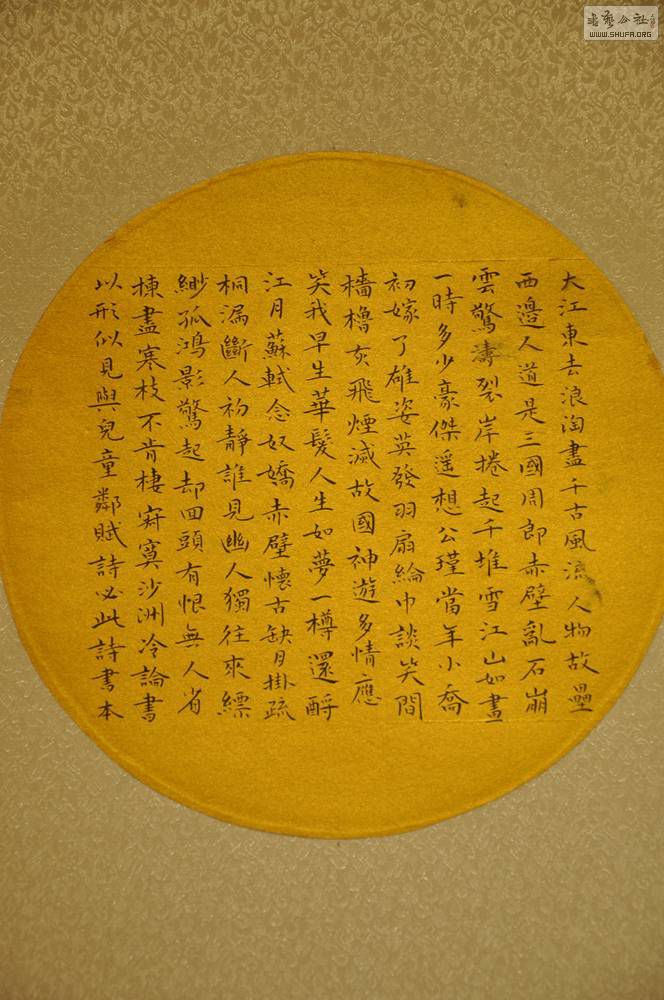 大江東去浪淘盡千古風流人物故壘
西邊人道是三國周郎赤壁亂石崩
雲驚濤裂岸捲起千堆雪江山如畫
一時多少豪傑遥想公瑾當年小喬
初嫁了雄姿英發羽扇綸巾談笑間
檣櫓灰飛煙滅故國神遊多情應
笑我早生華髮人生如夢一樽還酹
江月蘇軾念奴嬌赤壁懷古缺月掛疏
桐漏斷人初靜誰見幽人獨往來縹
緲孤鴻影驚起却回頭有恨無人省
揀盡寒枝不肯棲寂寞沙洲冷論書
以形似見與兒童鄰賦詩必此詩書本
書藝公社
WWW.SHUFA.ORG